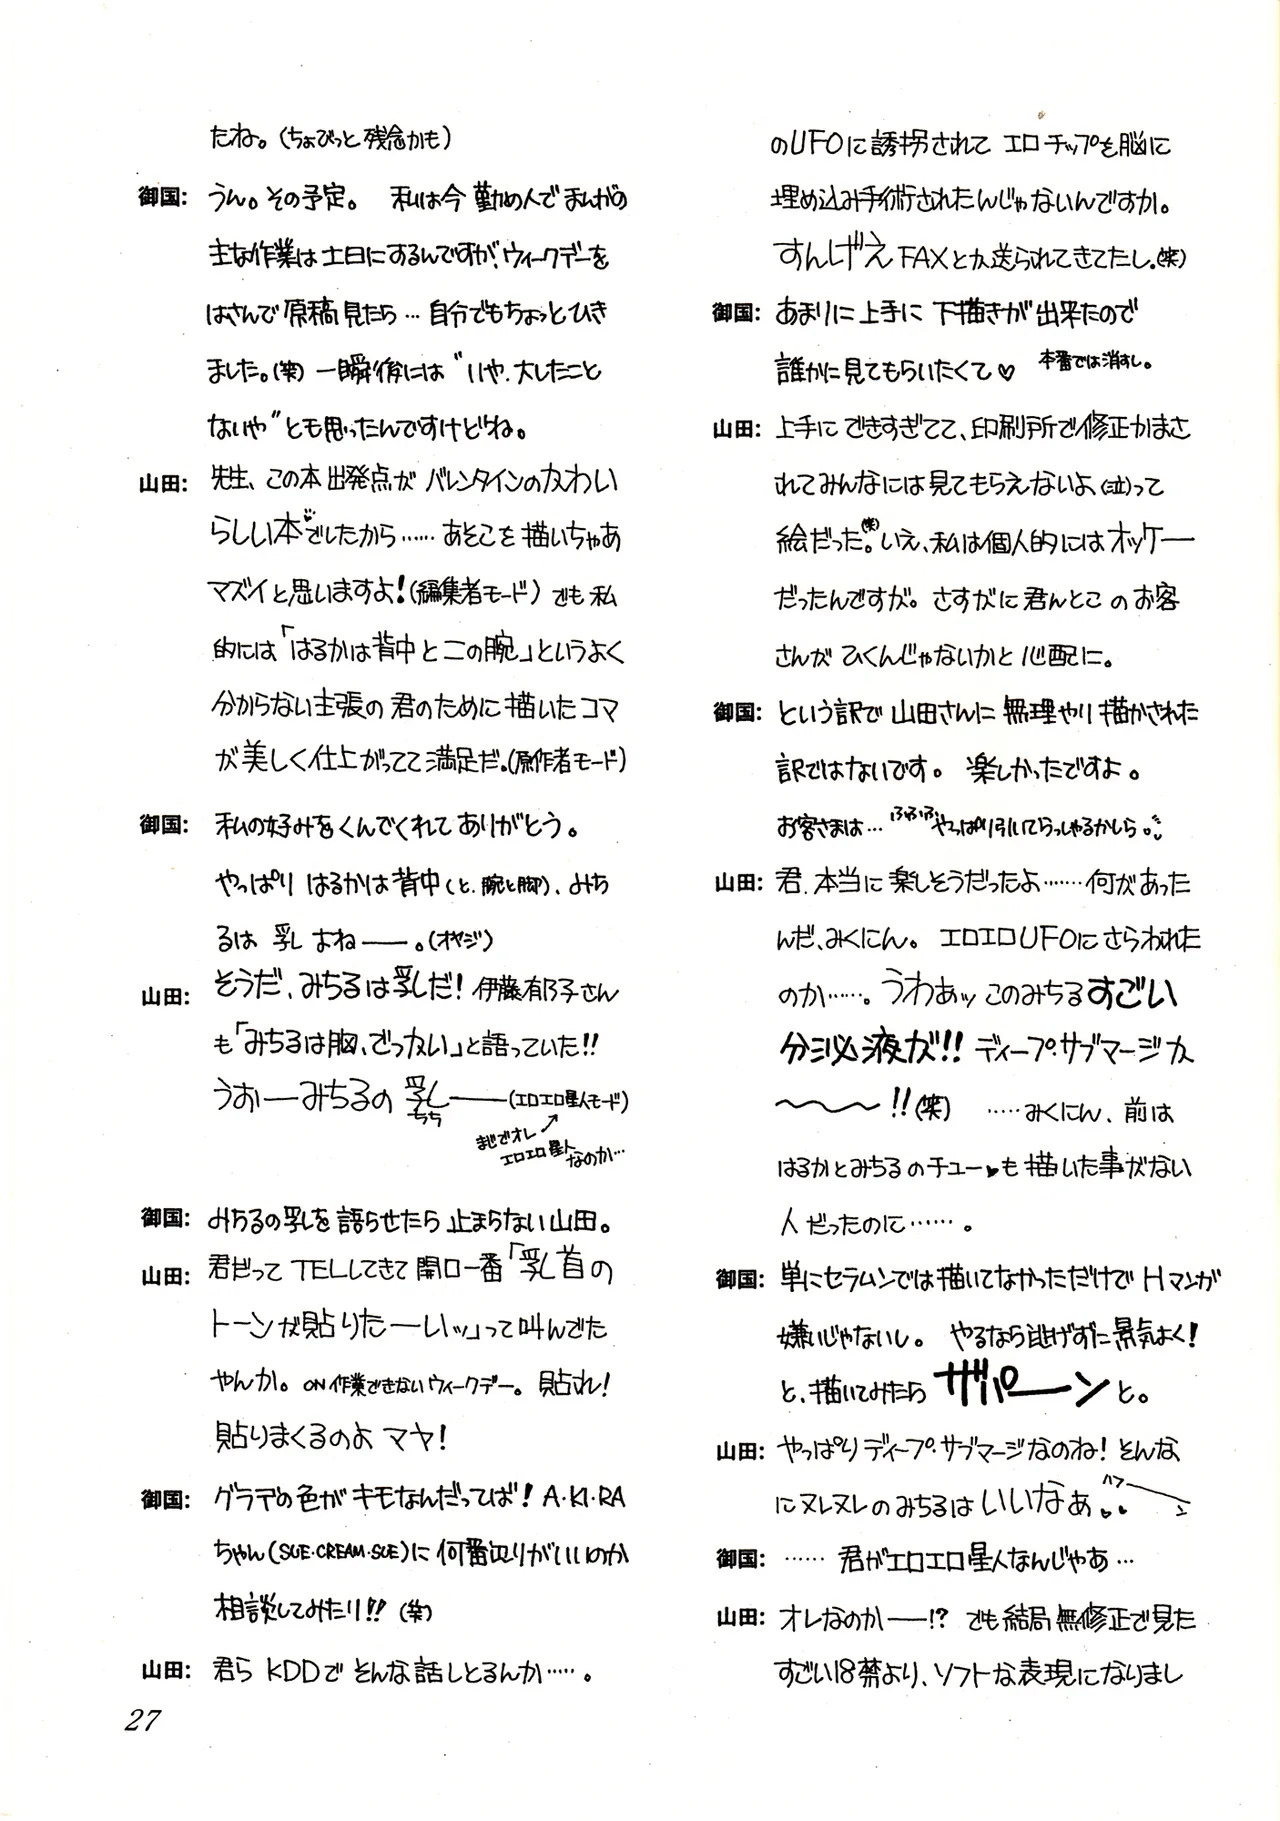 のUFOに誘拐されて エロチップを脳に
埋め込み手術されたんじゃないんですか。
すんげえFAXとか送られてきてたし。(笑)
御国: あまりに上手に 下描きが出来たので
誰かに見てもらいたくて♡ 本番では消すし。
山田: 上手にできすぎてて、印刷所で修正かまさ
れてみんなには見てもらえないよ、(泣)って
絵だった。(笑)いえ、私は個人的にはオッケー
だったんですが。さすがに君んとこのお客
さんがひくんじゃないかと心配に。
御国: という訳で山田さんに無理やり描かされた
訳ではないです。 楽しかったですよ。
お客さまは… ふふふ やっぱり引いてらっしゃるかしら。
山田: 君、本当に楽しそうだったよ……何があった
んだ、みくにん。 エロエロUFOにさらわれた
のか……。うわぁッこのみちるすごい
分泌液が!! ディープ・サブマージか
〜〜〜!!(笑) ……みくにん、前は
はるかとみちるのチュー♥も描いた事がない
人だったのに……。
御国: 単にセラムンでは描いてなかっただけでHマンガ
嫌いじゃないし。 やるなら逃げずに景気よく!
と、描いてみたらザパーンと。
山田: やっぱりディープ・サブマージなのね! そんな
にヌレヌレのみちるはいいなぁ♥♥ ハァーン
御国: ……君がエロエロ星人なんじゃあ…
山田: オレなのかー!? でも結局無修正で見た
すごい18禁より、ソフトな表現になりまし
たね。(ちょびっと残念かも)
御国: うん。その予定。 私は今勤め人でまんがの
主な作業は土日にするんですが、ウィークデーを
はさんで原稿見たら…自分でもちょっとひき
ました。(笑) 一瞬後には"いや、大したこと
ないや"とも思ったんですけどね。
山田: 先生、この本出発点がバレンタインのかわい
らしい本♡でしたから……あそこを描いちゃあ
マズイと思いますよ!(編集者モード) でも私
的には「はるかは背中と二の腕」というよく
分からない主張の君のために描いたコマ
が美しく仕上がってて満足だ。(原作者モード)
御国: 私の好みをくんでくれてありがとう。
やっぱりはるかは背中(と、腕と脚)、みち
るは 乳 よねー。(オヤジ)
山田: そうだ、みちるは乳だ! 伊藤郁子さん
も「みちるは胸、でっかい」と語っていた!!
うおーみちるの乳ー(エロエロ星人モード)
ちち
まじでオレ
エロエロ星人
なのか…
御国: みちるの乳を語らせたら止まらない山田。
山田: 君だってTELしてきて開口一番「乳首の
トーンが貼りたーいッ」って叫んでた
やんか。ON作業できないウィークデー。貼れ!
貼りまくるのよ マヤ!
御国: グラデの色がキモなんだってば! A・KI・RA
ちゃん(SUE・CREAM・SUE)に何番辺りがいいのか
相談してみたり!! (笑)
山田: 君ら KDDでそんな話しとるんか……。
27